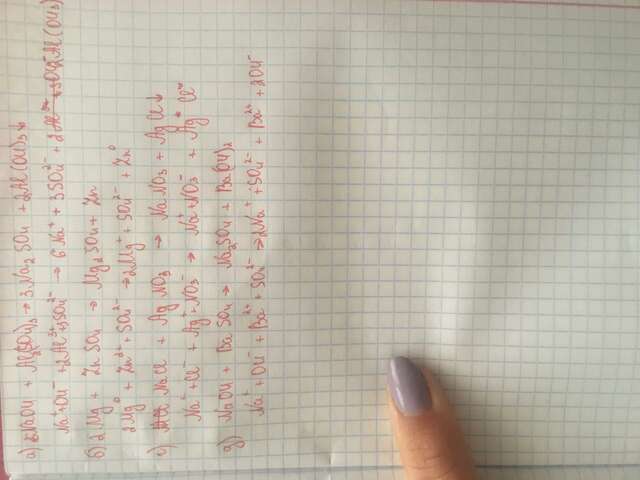 а) 6NaOH + Al2(SO4)3 → 3Na2SO4 + 2Al(OH)3↓
Na⁺+OH⁻ + 2Al³⁺+3SO4²⁻ → 6Na⁺ + 3SO4²⁻ + 2Al(OH)3
б) 2Mg + ZnSO4 → Mg2SO4 + Zn
2Mg⁰ + Zn²⁺ + SO4²⁻ → 2Mg⁺ + SO4²⁻ + Zn⁰
с) NaCl + AgNO3 → NaNO3 + AgCl↓
Na⁺ + Cl⁻ + Ag⁺ + NO3⁻ → Na⁺ + NO3⁻ + Ag⁺Cl⁻
д) NaOH + BaSO4 → Na2SO4 + Ba(OH)2
Na⁺ + OH⁻ + Ba²⁺ + SO4²⁻ → 2Na⁺ + SO4²⁻ + Ba²⁺ + 2OH⁻